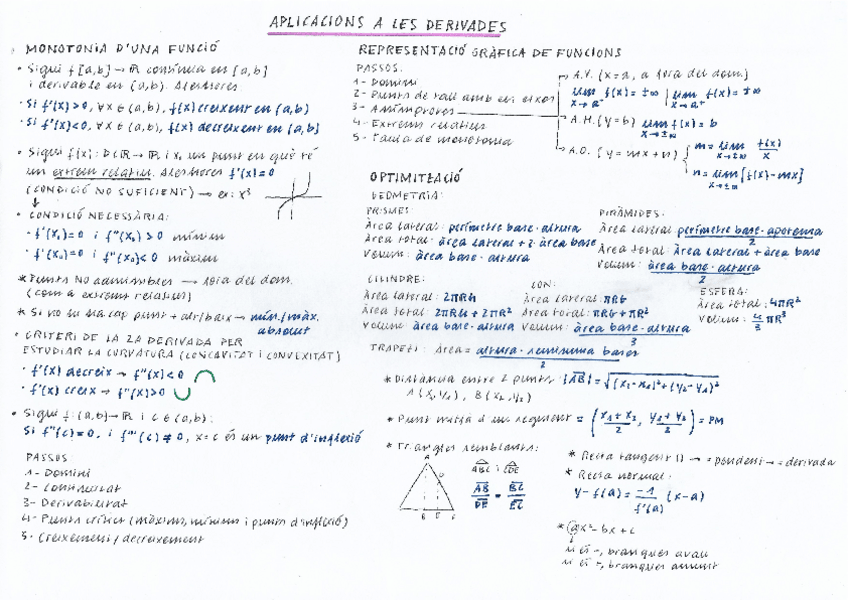 APLICACIONS A LES DERIVADES
MONOTONIA D'UNA FUNCIÓ
• Sigui f [a,b] → ℝ contínua en [a,b]
i derivable en (a,b). Aleshores:
• Si f'(x)>0, ∀x ∈ (a,b), f(x) creixent en (a,b)
• Si f'(x)<0, ∀x ∈ (a,b), f(x) decreixent en (a,b)
• Sigui f(x): D⊂ℝ → ℝ i x₀ un punt en què té
un extrem relatiu. Aleshores f'(x)=0
(CONDICIÓ NO SUFICIENT) → ex: x³
• CONDICIÓ NECESSÀRIA:
• f'(x₀)=0 i f''(x₀)>0 mínim
• f'(x₀)=0 i f''(x₀)<0 màxim
* Punts NO admissibles → fora del dom.
(com a extrem relatiu)
* Si no hi ha cap punt + alt/baix → mín./màx.
absolut
• CRITERI DE LA 2A DERIVADA PER
ESTUDIAR LA CURVATURA (CONCAVITAT I CONVEXITAT)
• f'(x) decreix → f''(x)<0
• f'(x) creix → f''(x)>0
• Sigui f:(a,b) → ℝ i c ∈ (a,b):
Si f''(c)=0, i f'''(c)≠0, x=c és un punt d'inflexió
PASSOS:
1- Domini
2- Continuïtat
3- Derivabilitat
4- Punts crítics (màxims, mínims i punts d'inflexió)
5- Creixement / decreixement
REPRESENTACIÓ GRÀFICA DE FUNCIONS
PASSOS:
1- Domini
2- Punts de tall amb els eixos
3- Asímptotes
4- Extrems relatius
5- Taula de monotonia
A.V. (x=a, a fora del dom.)
lim f(x)=±∞ | lim f(x)=±∞
x→a⁻ x→a⁺
A.H. (y=b) lim f(x)=b
x→±∞
A.O. (y=mx+n) m = lim f(x)/x
x→±∞
n = lim [f(x)-mx]
x→±∞
OPTIMITZACIÓ
GEOMETRIA:
PRISMES:
Àrea lateral: perímetre base · altura
Àrea total: àrea lateral + 2 · àrea base
Volum: àrea base · altura
PIRÀMIDES:
Àrea lateral: perímetre base · apotema / 2
Àrea total: Àrea lateral + àrea base
Volum: àrea base · altura / 2
CILINDRE:
Àrea lateral: 2πRG
Àrea total: 2πRG + 2πR²
Volum: àrea base · altura
CON:
Àrea lateral: πRG
Àrea total: πRG + πR²
Volum: àrea base · altura / 3
ESFERA:
Àrea total: 4πR²
Volum: 4/3 πR³
TRAPEZI: Àrea = altura · semisuma bases / 2
* Distància entre 2 punts: |AB| = √(x₂-x₁)²+(y₂-y₁)²
A(x₁,y₁), B(x₂,y₂)
* Punt mitjà d'un segment = (x₁+x₂/2, y₁+y₂/2) = PM
* Triangles semblants:
A
D
B E C
ABC i CDE
AB/DE = BC/EC
* Recta tangent → = pendent → = derivada
* Recta normal:
y-f(a) = -1/f'(a) (x-a)
* ax²-bx+c
si és -, branques avall
si és +, branques amunt